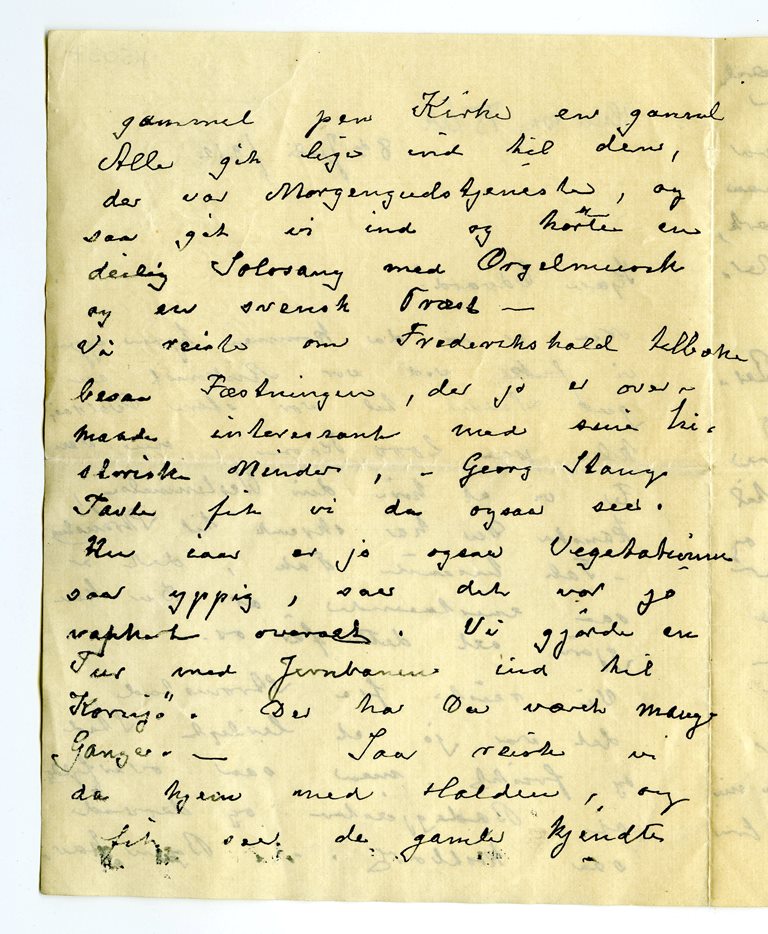 gammel pen Kirke en gammel
Alle gik lige ind til den,
der var Morgengudstjeneste, og
saa gik vi ind og hørte en
deilig Solosang med Orgelmusik
og en svensk Præst —
Vi reiste om Frederikshald tilbake
besaa Fæstningen, der jo er over-
maade interessant med sine hi-
storiske Minder, - Georg Stangs
Tavle fik vi da ogsaa see.
Nu iaar er jo ogsaa Vegetationen
saa yppig, saa det var jo
vakkert overalt. Vi gjörde en
Tur med Jernbanen ind til
Kornsjö. Der har Du været mange
Gange. — Saa reiste vi
da hjem med Halden, og
fik see de gamle kjendte